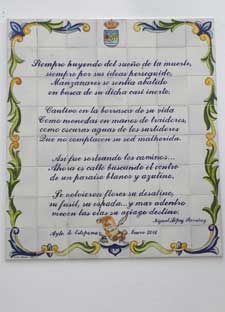 Siempre huyendo del sueño de la muerte,
siempre por sus ideas perseguido,
Manzanares se sentía abatido
en busca de su dicha casi inerte.
Cautivo en la borrasca de su vida
Como monedas en manos de traidores,
como oscuras aguas de los surtidores
Que no complacen su sed malherida.
Así fue sorteando los caminos...
Ahora es calle buscando el centro
de un paraíso blanco y azulino,
Se volvieron flores su desatino,
su fusil, su espada... y mar adentro
mecen las olas su aciago destino.
Ayto. de Estepona Enero 2016